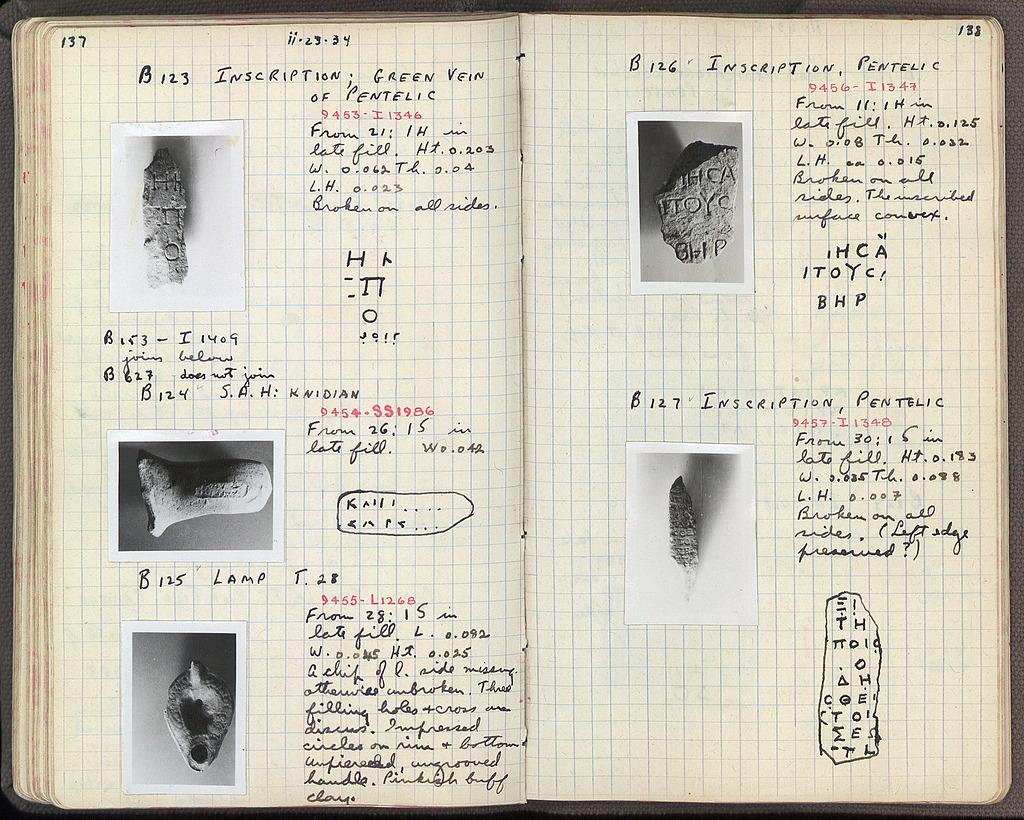 137
ii-23-34
B 123 INSCRIPTION; GREEN VEIN
OF PENTELIC
9453-I 1346
From 21: 1H in
late fill. Ht. 0.203
W. 0.062 Th. 0.04
L.H. 0.023
Broken on all sides.
Π
Ο
B 153 - I 1409
joins below
B 627 does not join
B 124 S.A.H: KNIDIAN
9454-SS1986
From 26: 15 in
late fill. W 0.042
B 125 LAMP T. 28
9455-L1268
From 28: 15 in
late fill. L. 0.092
W. Ht. 0.025
A chip of l. side missing
otherwise unbroken. Three
filling holes + cross on
discus. Impressed
circles on rim + bottom
unpierced, ungrooved
handle. Pinkish buff
clay.
138
B 126 INSCRIPTION, PENTELIC
9456-I 1347
From 11: 1H in
late fill. Ht. 0.125
W. 0.08 Th. 0.032
L.H. ca 0.015
Broken on all
sides. The inscribed
surface convex.
ΙΗCΑ
ΙΤΟΥC
ΒΗΡ
B 127 INSCRIPTION, PENTELIC
9457-I 1348
From 30: 15 in
late fill. Ht. 0.183
W. 0.035 Th. 0.088
L.H. 0.007
Broken on all
sides. (Left edge
preserved?)
Ξ Ι
Τ Η
Π Ο Ι
Ο
Δ Η
Θ Ε
Τ Ο
Σ Ε